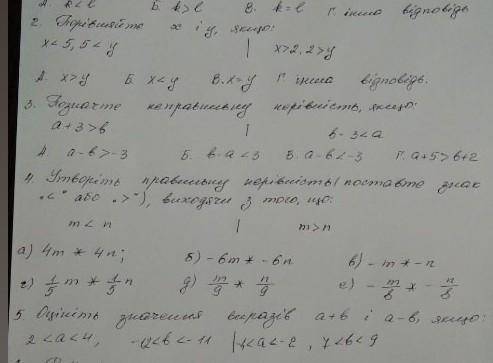 А. k<l Б. k>l В. k=l Г. інша відповідь
2. Порівняйте x і y, якщо:
x<5, 5<y | x>2, 2>y
А. x>y Б. x<y В. x=y Г. інша відповідь.
3. Позначте неправильну нерівність, якщо:
a+3>b | b-3<a
А. a-b>-3 Б. b-a<3 В. a-b<-3 Г. a+5>b+2
4. Утворіть правильну нерівність (поставте знак
"<" або ">"), виходячи з того, що:
m<n | m>n
а) 4m * 4n; б) -6m * -6n в) -m * -n
г) 1/5 m * 1/5 n д) m/9 * n/9 е) -m/8 * -n/8
5. Оцініть значення виразів a+b і a-b, якщо:
2<a<4, -12<b<-11 | -4<a<-2, 7<b<9